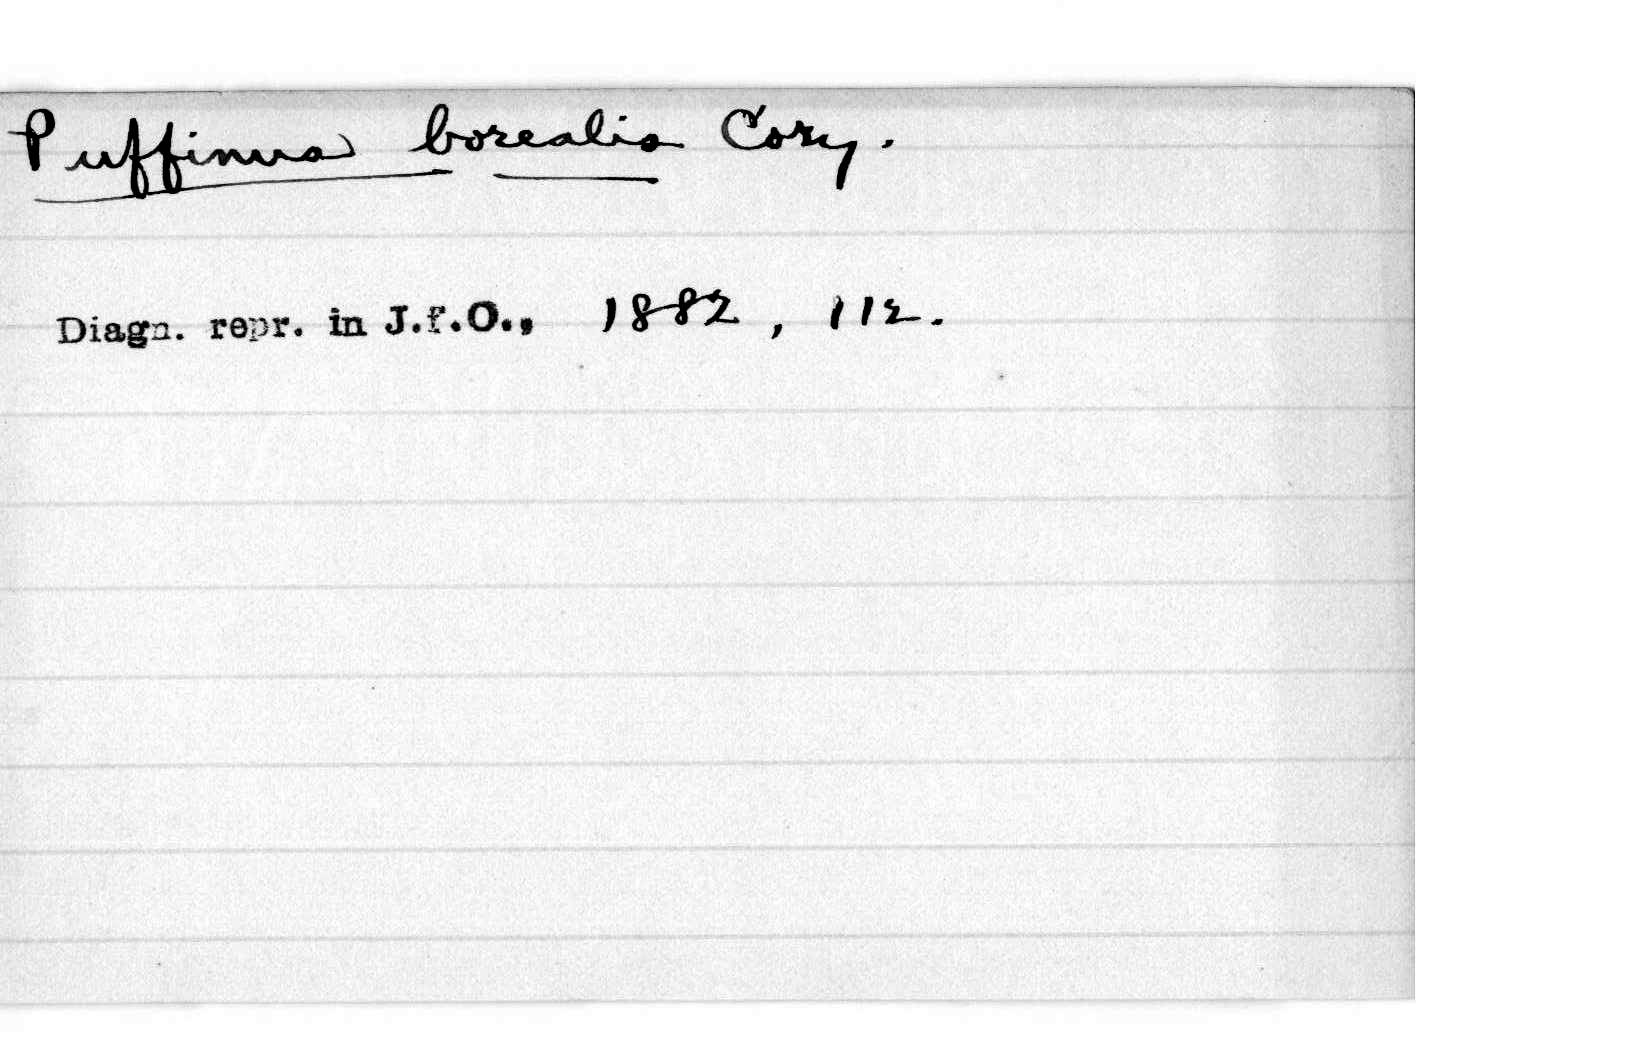 Puffinus borealis Cory.
Diagn. repr. in J.f.O., 1882, 112.